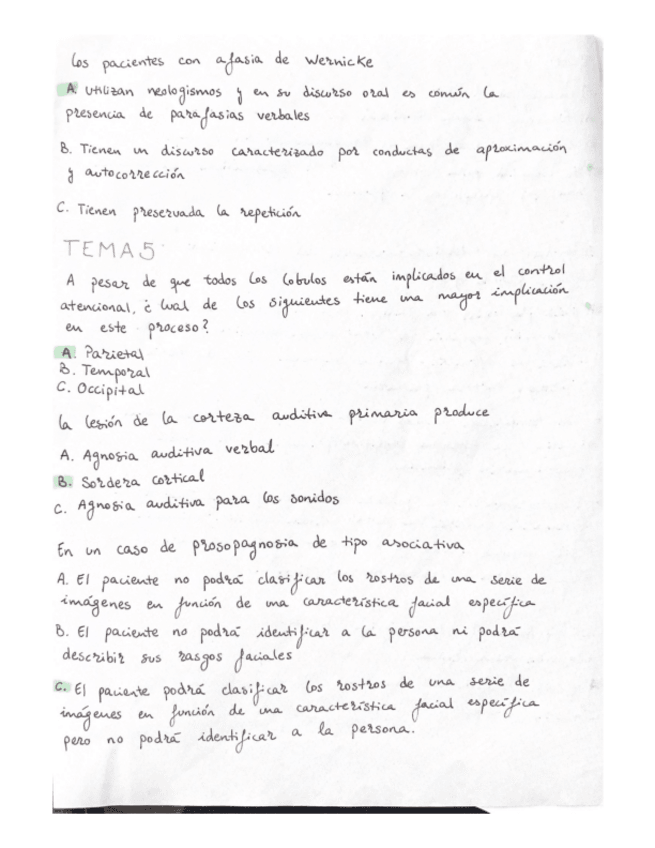 Los pacientes con afasia de Wernicke
A. Utilizan neologismos y en su discurso oral es común la
presencia de parafasias verbales
B. Tienen un discurso caracterizado por conductas de aproximación
y autocorrección
C. Tienen preservada la repetición
TEMA 5
A pesar de que todos los lobulos están implicados en el control
atencional, ¿ Cual de los siguientes tiene una mayor implicación
en este proceso?
A. Parietal
B. Temporal
C. Occipital
La lesión de la corteza auditiva primaria produce
A. Agnosia auditiva verbal
B. Sordera cortical
C. Agnosia auditiva para los sonidos
En un caso de prosopagnosia de tipo asociativa
A. El paciente no podrá clasificar los rostros de una serie de
imágenes en función de una característica facial específica
B. El paciente no podrá identificar a la persona ni podrá
describir sus rasgos faciales
C. El paciente podrá clasificar los rostros de una serie de
imágenes en función de una característica facial específica
pero no podrá identificar a la persona.